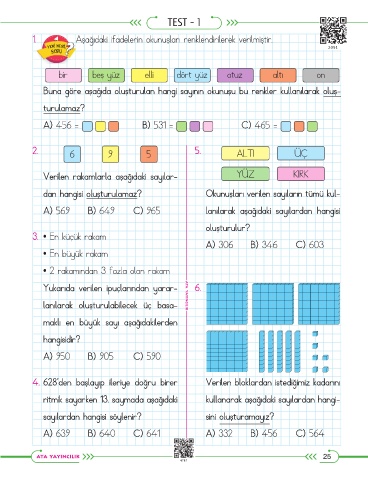 TEST - 1
1. Aşağıdaki ifadelerin okunuşları renklendirilerek verilmiştir.
YENİ NESİL
SORU
bir
beş yüz
elli
dört yüz
otuz
altı
on
Buna göre aşağıda oluşturulan hangi sayının okunuşu bu renkler kullanılarak oluş-
turulamaz?
A) 456 =
B) 531 =
C) 465 =
2.
6
9
5
Verilen rakamlarla aşağıdaki sayılar-
dan hangisi oluşturulamaz?
A) 569 B) 649 C) 965
3. • En küçük rakam
• En büyük rakam
• 2 rakamından 3 fazla olan rakam
Yukarıda verilen ipuçlarından yarar-
lanılarak oluşturulabilecek üç basa-
maklı en büyük sayı aşağıdakilerden
hangisidir?
A) 950 B) 905 C) 590
4. 628'den başlayıp ileriye doğru birer
ritmik sayarken 13. saymada aşağıdaki
sayılardan hangisi söylenir?
A) 639 B) 640 C) 641
5.
ALTI
ÜÇ
YÜZ
KIRK
Okunuşları verilen sayıların tümü kul-
lanılarak aşağıdaki sayılardan hangisi
oluşturulur?
A) 306 B) 346 C) 603
6.
Verilen bloklardan istediğimiz kadarını
kullanarak aşağıdaki sayılardan hangi-
sini oluşturamayız?
A) 332 B) 456 C) 564
ATA YAYINCILIK
25